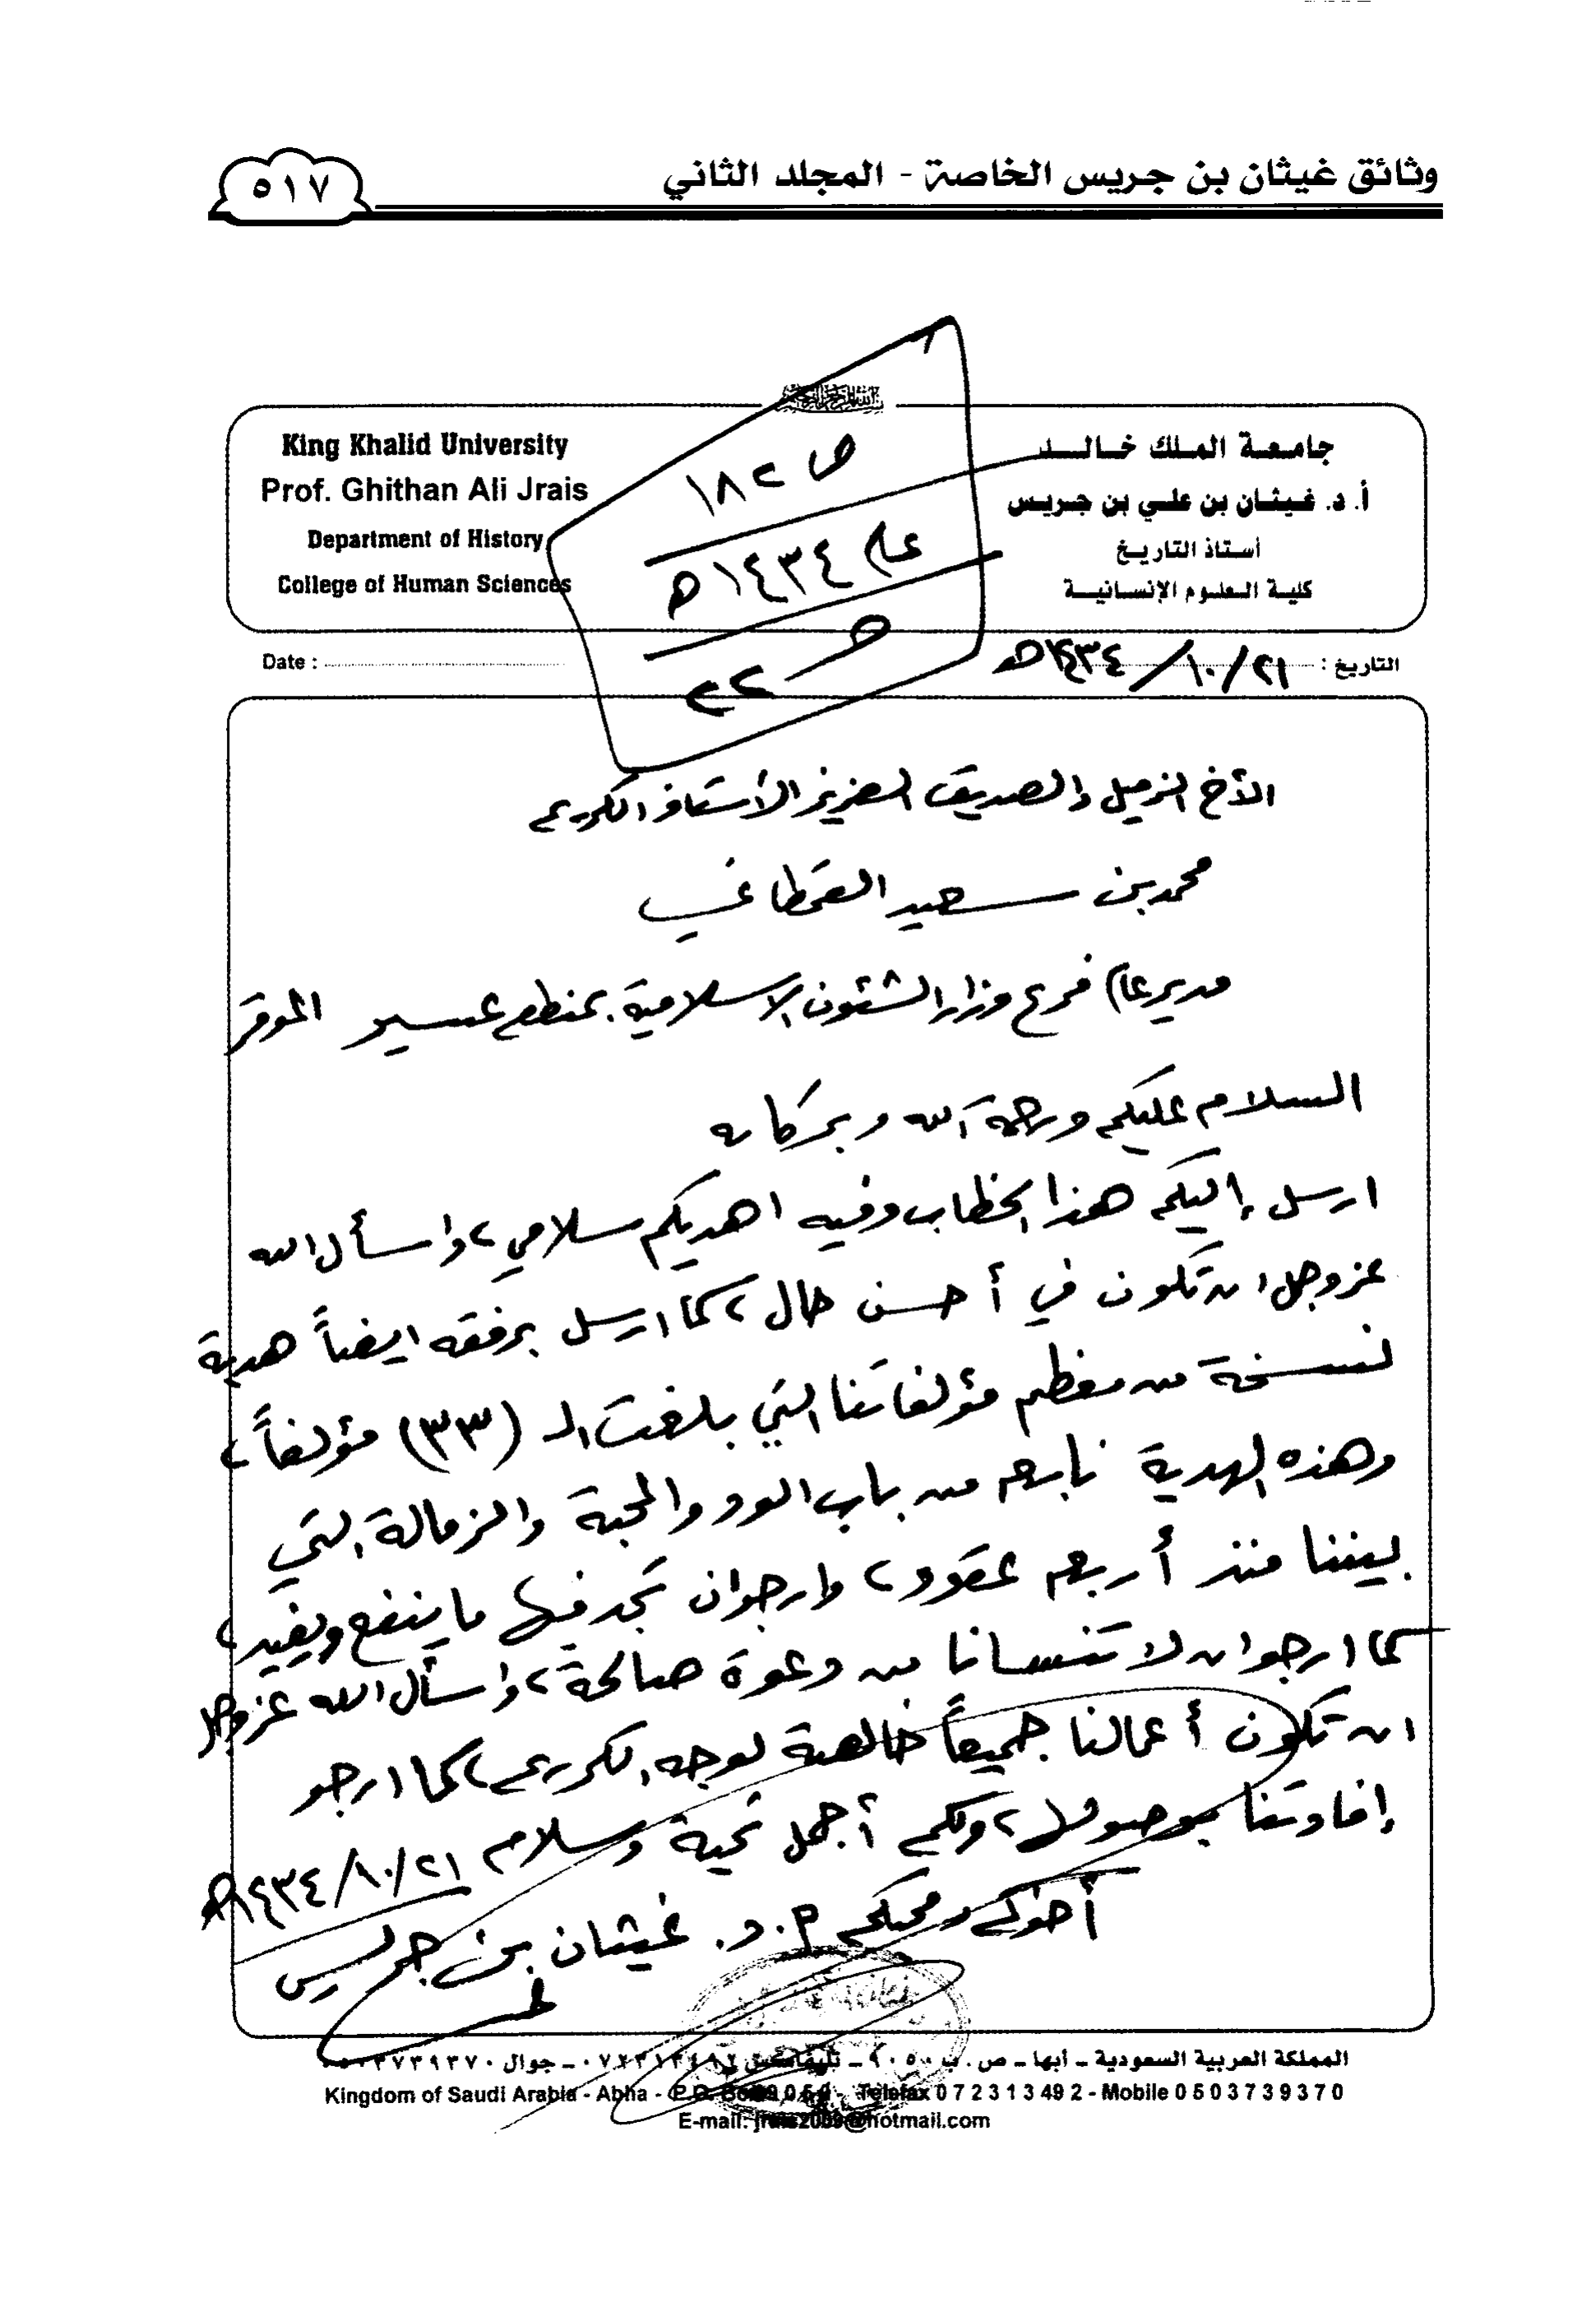 وثائق غيثان بن جريس الخاصة - المجلد الثاني
٥١٧
جامعة الملك خالد
أ. د. غيثان بن علي بن جريس
أستاذ التاريخ
كلية العلوم الإنسانية
King Khalid University
Prof. Ghithan Ali Jrais
Department of History
College of Human Sciences
ص ١٨٢
عام ١٤٣٤هـ
حـ ٢٢
التاريخ : ٢١/١٠/١٤٣٤هـ
Date :
الأخ الزميل والصديق العزيز الأستاذ الكريم
محمد بن سعيد القحطاني
مدير عام فرع وزارة الشئون الاسلامية بمنطقة عسير الموقر
السلام عليكم ورحمة الله وبركاته
ارسل إليكم هذا الخطاب وفيه اهديكم سلامي، واسأل الله
عزوجل ان تكون في أحسن حال، كما ارسل برفقه ايضاً هدية
نسخة من معظم مؤلفاتنا التي بلغت الـ (٣٣) مؤلفاً،
وهذه الهدية نابعة من باب الود والمحبة والزمالة التي
بيننا منذ أربعة عقود، وارجو ان تجد فيها ما ينفع ويفيد،
كما ارجو ان لا تنسانا من دعوة صالحة، واسأل الله عزوجل
ان تكون أعمالنا جميعاً خالصة لوجهه الكريم، كما ارجو
إفادتنا بوصولها، ولكم أجمل تحية وسلام ٢١/١٠/١٤٣٤هـ
أخوكم ومحبكم أ. د. غيثان بن جريس
المملكة العربية السعودية - أبها - ص. ب ٩٠٥٠ - تليفاكس ٠٧٢٣١٣٤٩٢ - جوال ٠٥٠٣٧٣٩٣٧٠
Kingdom of Saudi Arabia - Abha - P.O. Box 9050 - Telefax 0 7 2 3 1 3 49 2 - Mobile 0 5 0 3 7 3 9 3 7 0
E-mail: jrais2009@hotmail.com